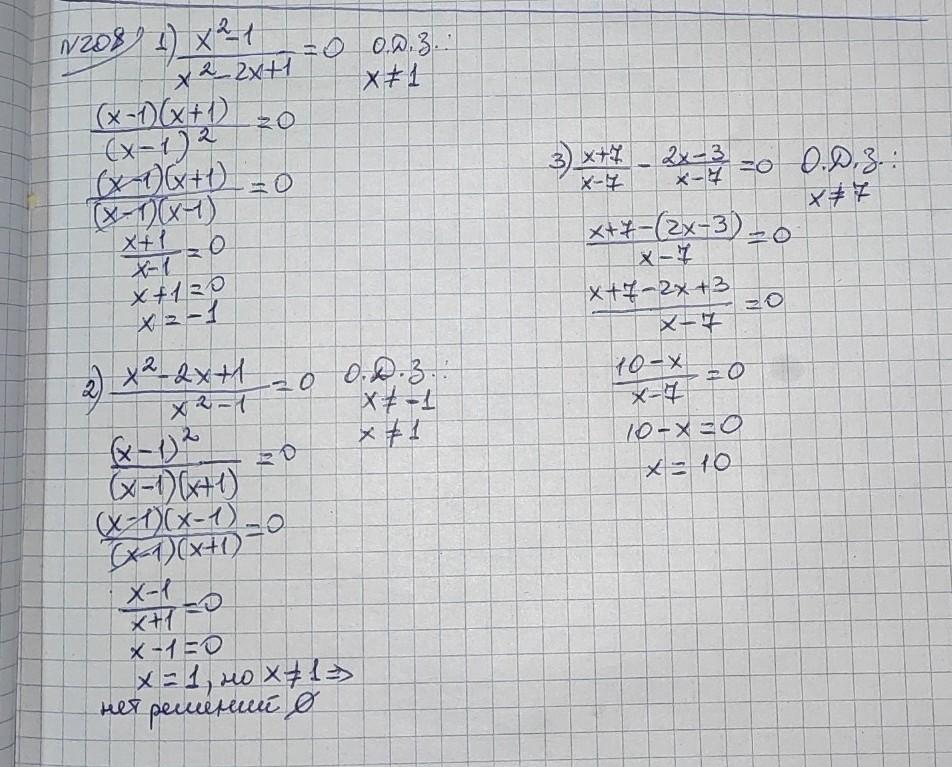 №208) 1) (x²-1)/(x²-2x+1) = 0 О.Д.З.:
x ≠ 1
((x-1)(x+1))/((x-1)²) = 0
((x-1)(x+1))/((x-1)(x-1)) = 0
(x+1)/(x-1) = 0
x+1 = 0
x = -1
2) (x²-2x+1)/(x²-1) = 0 О.Д.З.:
x ≠ -1
x ≠ 1
((x-1)²)/((x-1)(x+1)) = 0
((x-1)(x-1))/((x-1)(x+1)) = 0
(x-1)/(x+1) = 0
x-1 = 0
x = 1, но x ≠ 1 ⇒
нет решений ∅
3) (x+7)/(x-7) - (2x-3)/(x-7) = 0 О.Д.З.:
x ≠ 7
(x+7-(2x-3))/(x-7) = 0
(x+7-2x+3)/(x-7) = 0
(10-x)/(x-7) = 0
10-x = 0
x = 10